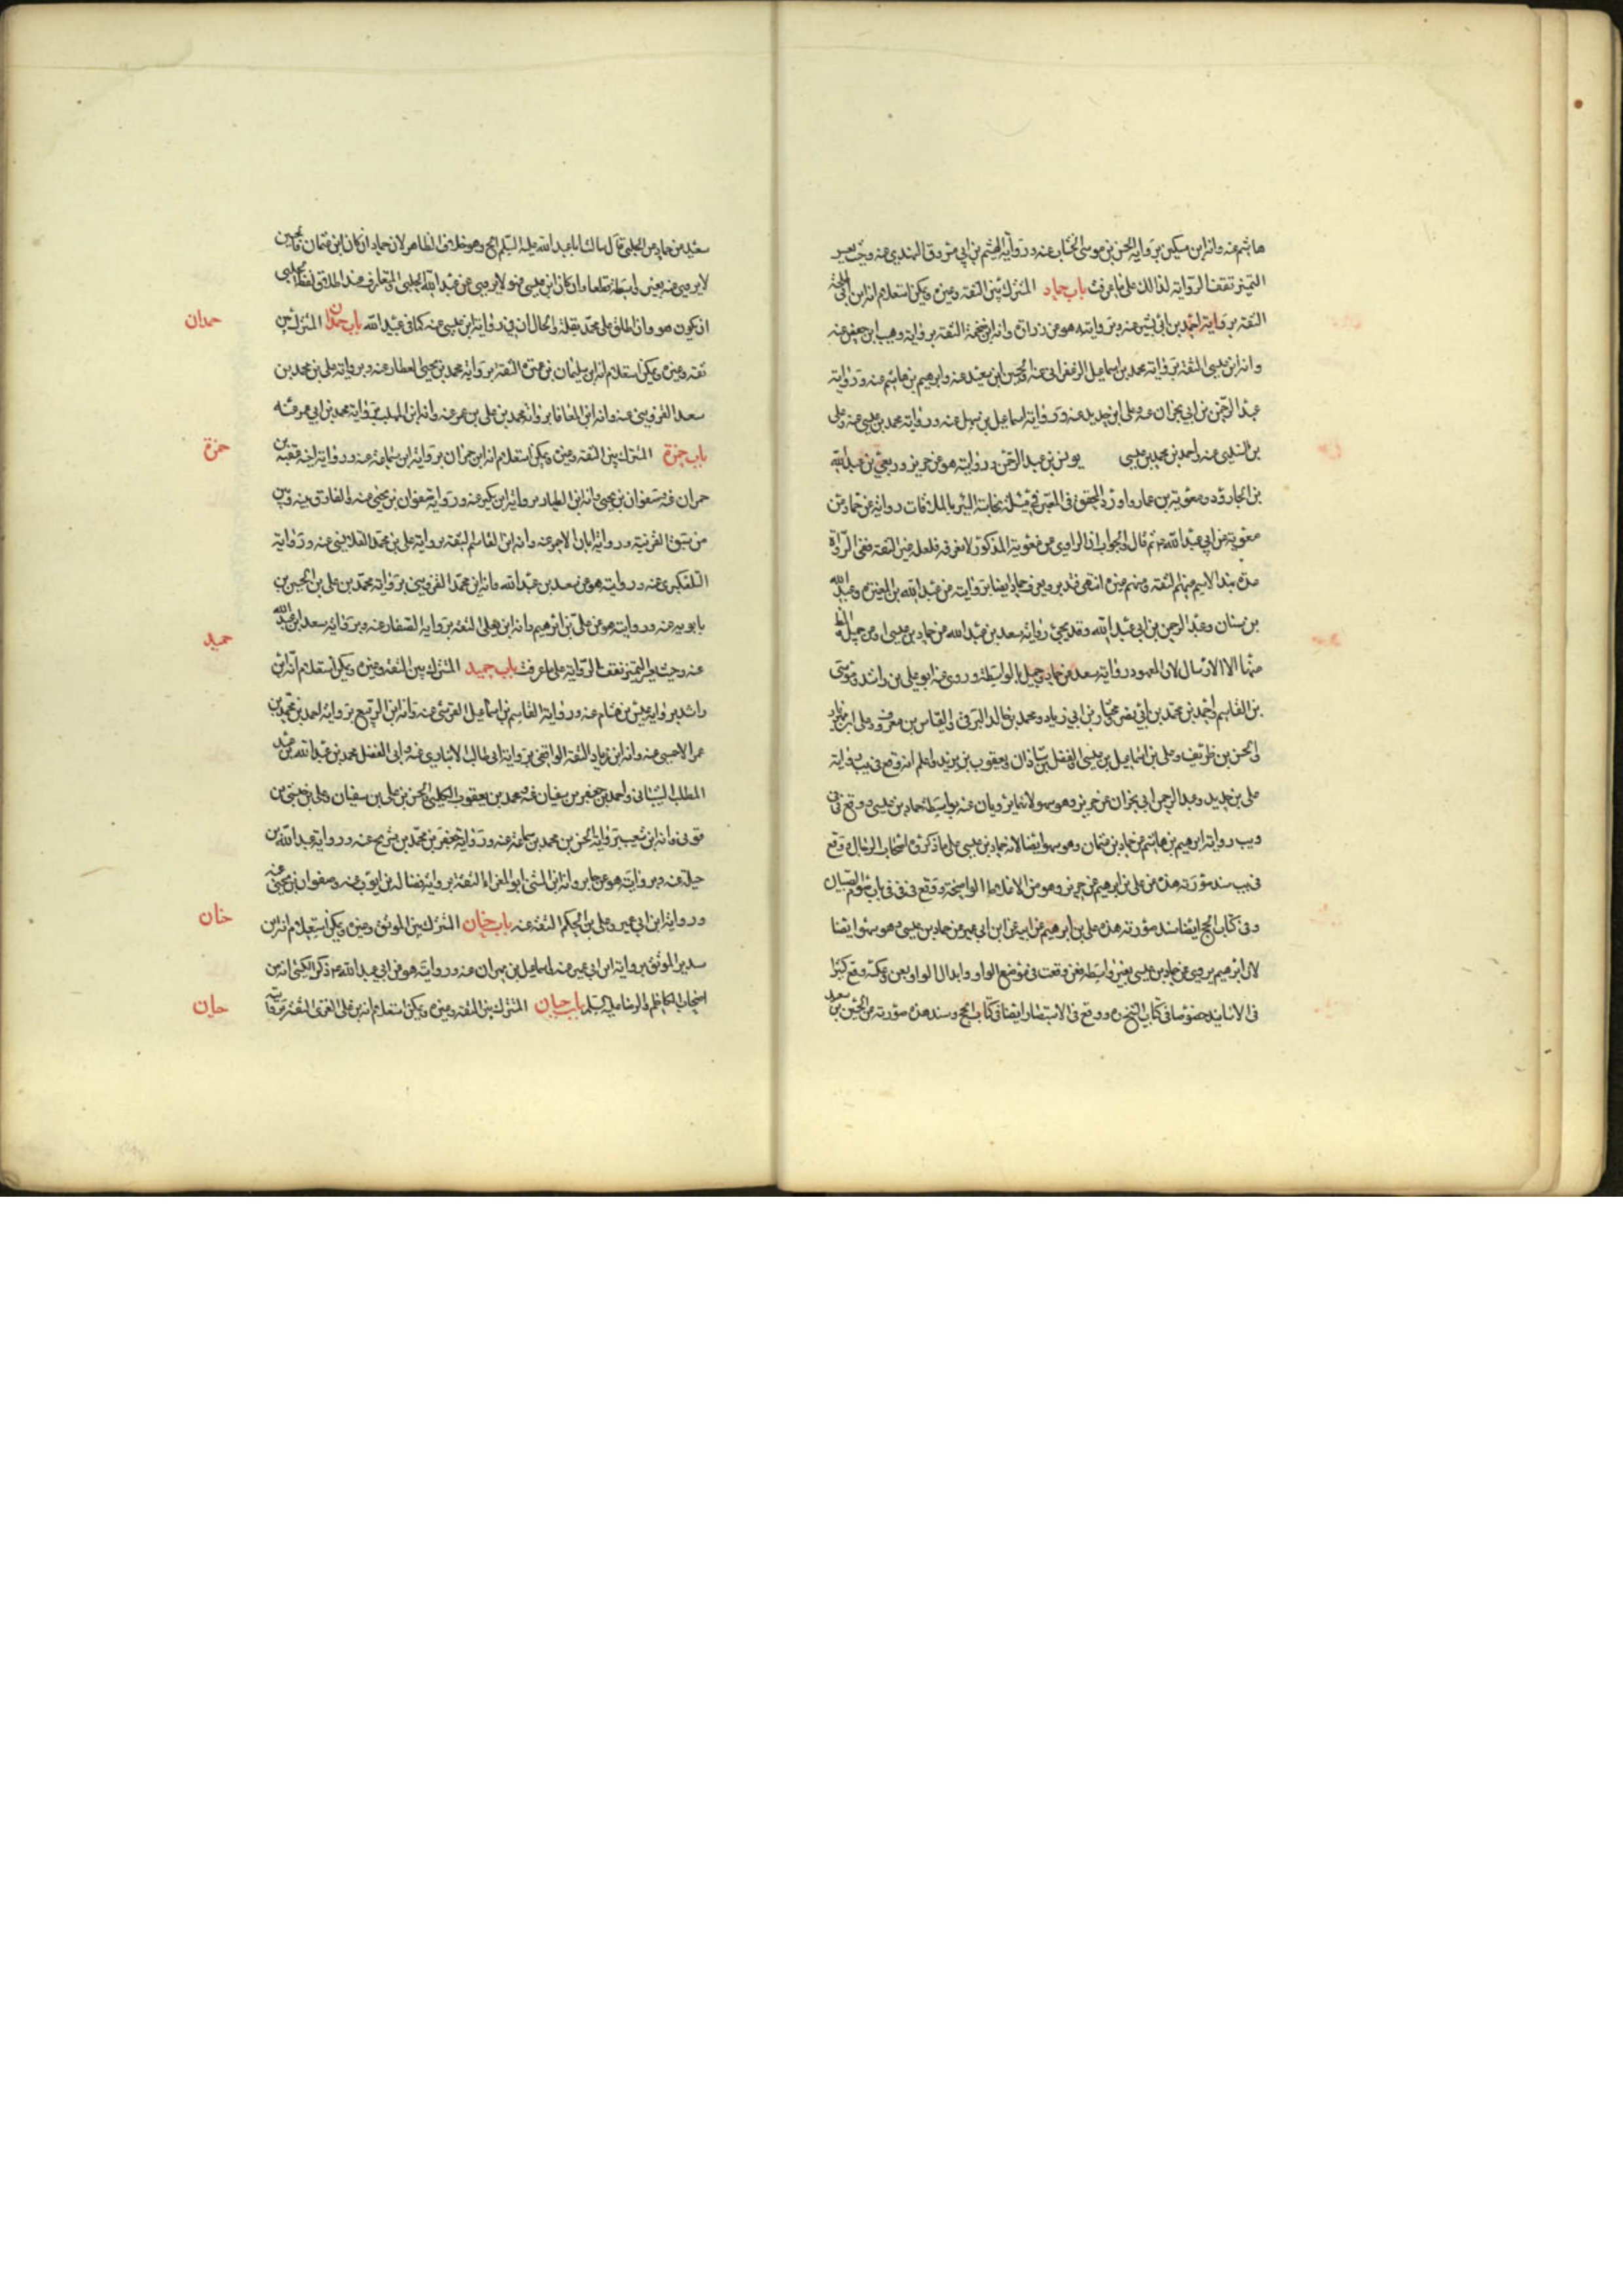 هاشم عنه وانه ابن مسكين برواية الحسن بن موسى الخشاب عنه ورواية الهيثم بن ابي مسروق النهدي عنه وحيث يعسر
التميز تقف الرواية لذلك على ما عرفت باب حماد المشترك بين الثقة وغيره ويمكن استعلام انه ابن
الثقة برواية احمد بن ابي بشير عنه وبروايته هو عن زرارة وانه ابن ضخمة الثقة برواية وهيب ابن حفص عنه
وانه ابن عيسى الثقة برواية محمد بن اسماعيل الزعفراني عنه والحسين ابن سعيد عنه وابرهيم بن هاشم عنه ورواية
عبد الرحمن بن ابي نجران عنه وعلى ابن حديد عنه ورواية اسماعيل بن سهل عنه ورواية محمد بن عيسى عنه وعلى
بن السندي عنه واحمد بن محمد بن عيسى يونس بن عبد الرحمن وروايته هو عن حريز وربعي بن عبد الله
بن الجارود ومعوية بن عمار واورد المحقق في المعتبر في مسئلة نجاسة البئر بالملاقات رواية عن حماد عن
معوية عن ابي عبد الله ع ثم قال والجواب ان الراوي عن معوية المذكور لا نعرفه فلعله غير الثقة ففي الرواة
عدة بهذا الاسم منهم الثقة ومنهم غيره انتهى وقد يعرف حماد ايضا بروايته عن عبد الله بن المغيرة وعبد الله
بن سنان وعبد الرحمن بن ابي عبد الله وقد يجئ رواية سعد بن عبد الله عن حماد بن عيسى او عن جميل
منهما الا الارسال لان المعهود رواية سعد عن حماد وجميل بالواسطة وروى عنه ابو علي بن راشد وموسى
بن القاسم واحمد بن محمد بن ابي نصر ومختار بن ابي زياد ومحمد بن خالد البرقي والعباس بن معروف وعلى ابن مهزيار
والحسن بن ظريف وعلى بن اسماعيل بن عيسى والفضل بن شاذان ويعقوب بن يزيد واعلم انه وقع في يب رواية
على بن حديد وعبد الرحمن ابي نجران عن حريز وهو سهو لانهما يرويان عنه بواسطة حماد بن عيسى ووقع في
ويب رواية ابرهيم بن هاشم عن حماد بن عثمان وهو سهو ايضا لانه حماد بن عيسى على ما ذكره اصحاب الرجال ووقع
في يب سند صورته هذه عن على بن ابرهيم عن حريز وهو من الاغلاط الواضحة ووقع في باب صوم الصبيان
وفي كتاب الحج ايضا سند صورته هذه على بن ابرهيم عن ابيه عن ابن ابي عمير عن حماد بن عيسى وهو سهو ايضا
لان ابرهيم يروي عن حماد بن عيسى بغير واسطة فعن وقعت في موضع الواو وابدال الواو بعن وعكسه وقع كثيرا
في الاسانيد خصوصا في كتاب الشيخ ره ووقع في الاستبصار ايضا في كتاب الحج وسند هذه صورته عن الحسين بن سعيد
سعيد عن حماد عن الحلبي قال سالت ابا عبد الله عليه السلم الخ وهو خلاف الظاهر لان حماد ان كان ابن عثمان فالحسين
لا يروي عنه بغير واسطة قطعا وان كان ابن عيسى فهو لا يروي عن عبد الله الحلبي والمتعارف عند اطلاق لفظ الحلبي
ان يكون هو وان اطلق على محمد بقلة والحال ان في رواية ابن عيسى عنه كما في عبيد الله باب حمدان المشترك بين
حمدان
ثقة وغيره ويمكن استعلام انه ابن سليمان بن عميرة الثقة برواية محمد بن يحيى العطار عنه وبرواية على بن محمد بن
سعد القزويني عنه وانه ابن المعافا برواية محمد بن على بن معمر عنه وانه ابن المهلب برواية محمد بن ابي عمر عنه
باب حمزة المشترك بين الثقة وغيره ويمكن استعلام انه ابن حمران برواية ابن سماعة عنه ورواية اخيه عقبة بن
حمزة
حمران عنه وصفوان بن يحيى وانه ابن الطيار برواية ابن بكير عنه ورواية صفوان بن يحيى عنه والفارق بينه وبين
من سبق القرينة ورواية ابان الاحمر عنه وانه ابن القاسم الثقة برواية على بن محمد القلانسي عنه ورواية
التلعكبري عنه وروايته هو عن سعد بن عبد الله وانه ابن محمد القزويني برواية محمد بن على بن الحسين بن
بابويه عنه وروايته هو عن على بن ابرهيم وانه ابن يعلى الثقة برواية الصفار عنه وبرواية سعد ابن عبد الله
عنه وحيث يعسر التميز تقف الرواية على ما عرفت باب حميد المشترك بين الثقة وغيره ويمكن استعلام انه ابن
حميد
راشد برواية عبيس بن هشام عنه ورواية القاسم بن اسماعيل القرشي عنه وانه ابن الربيع برواية احمد بن محمد بن
عمر الاحمسي عنه وانه ابن زياد الثقة الواقفي برواية ابي طالب الانباري عنه وابي المفضل محمد بن عبد الله بن عبد
المطلب الشيباني واحمد بن جعفر بن سفيان عنه ومحمد بن يعقوب الكليني والحسن بن على بن سفيان وعلى بن حبشي بن
قوني وانه ابن شعيب برواية الحسن بن محمد بن سماعة عنه ورواية جعفر بن محمد بن شريح عنه ورواية عبد الله بن
جبلة عنه وبروايته هو عن جابر وانه ابن المثنى ابو المغراء الثقة برواية فضالة بن ايوب عنه وصفوان بن يحيى عنه
ورواية ابن ابي عمير وعلى بن الحكم الثقة عنه باب حنان المشترك بين الموثق وغيره ويمكن استعلام انه ابن
حنان
سدير الموثق برواية ابن ابي عمير عنه واسماعيل بن مهران عنه وروايته هو عن ابي عبد الله ع ذكر الكشي انه من
اصحاب الكاظم والرضا عليهما السلم باب حيان المشترك بين الثقة وغيره ويمكن استعلام انه ابن على العنزي الثقة برواية
حيان